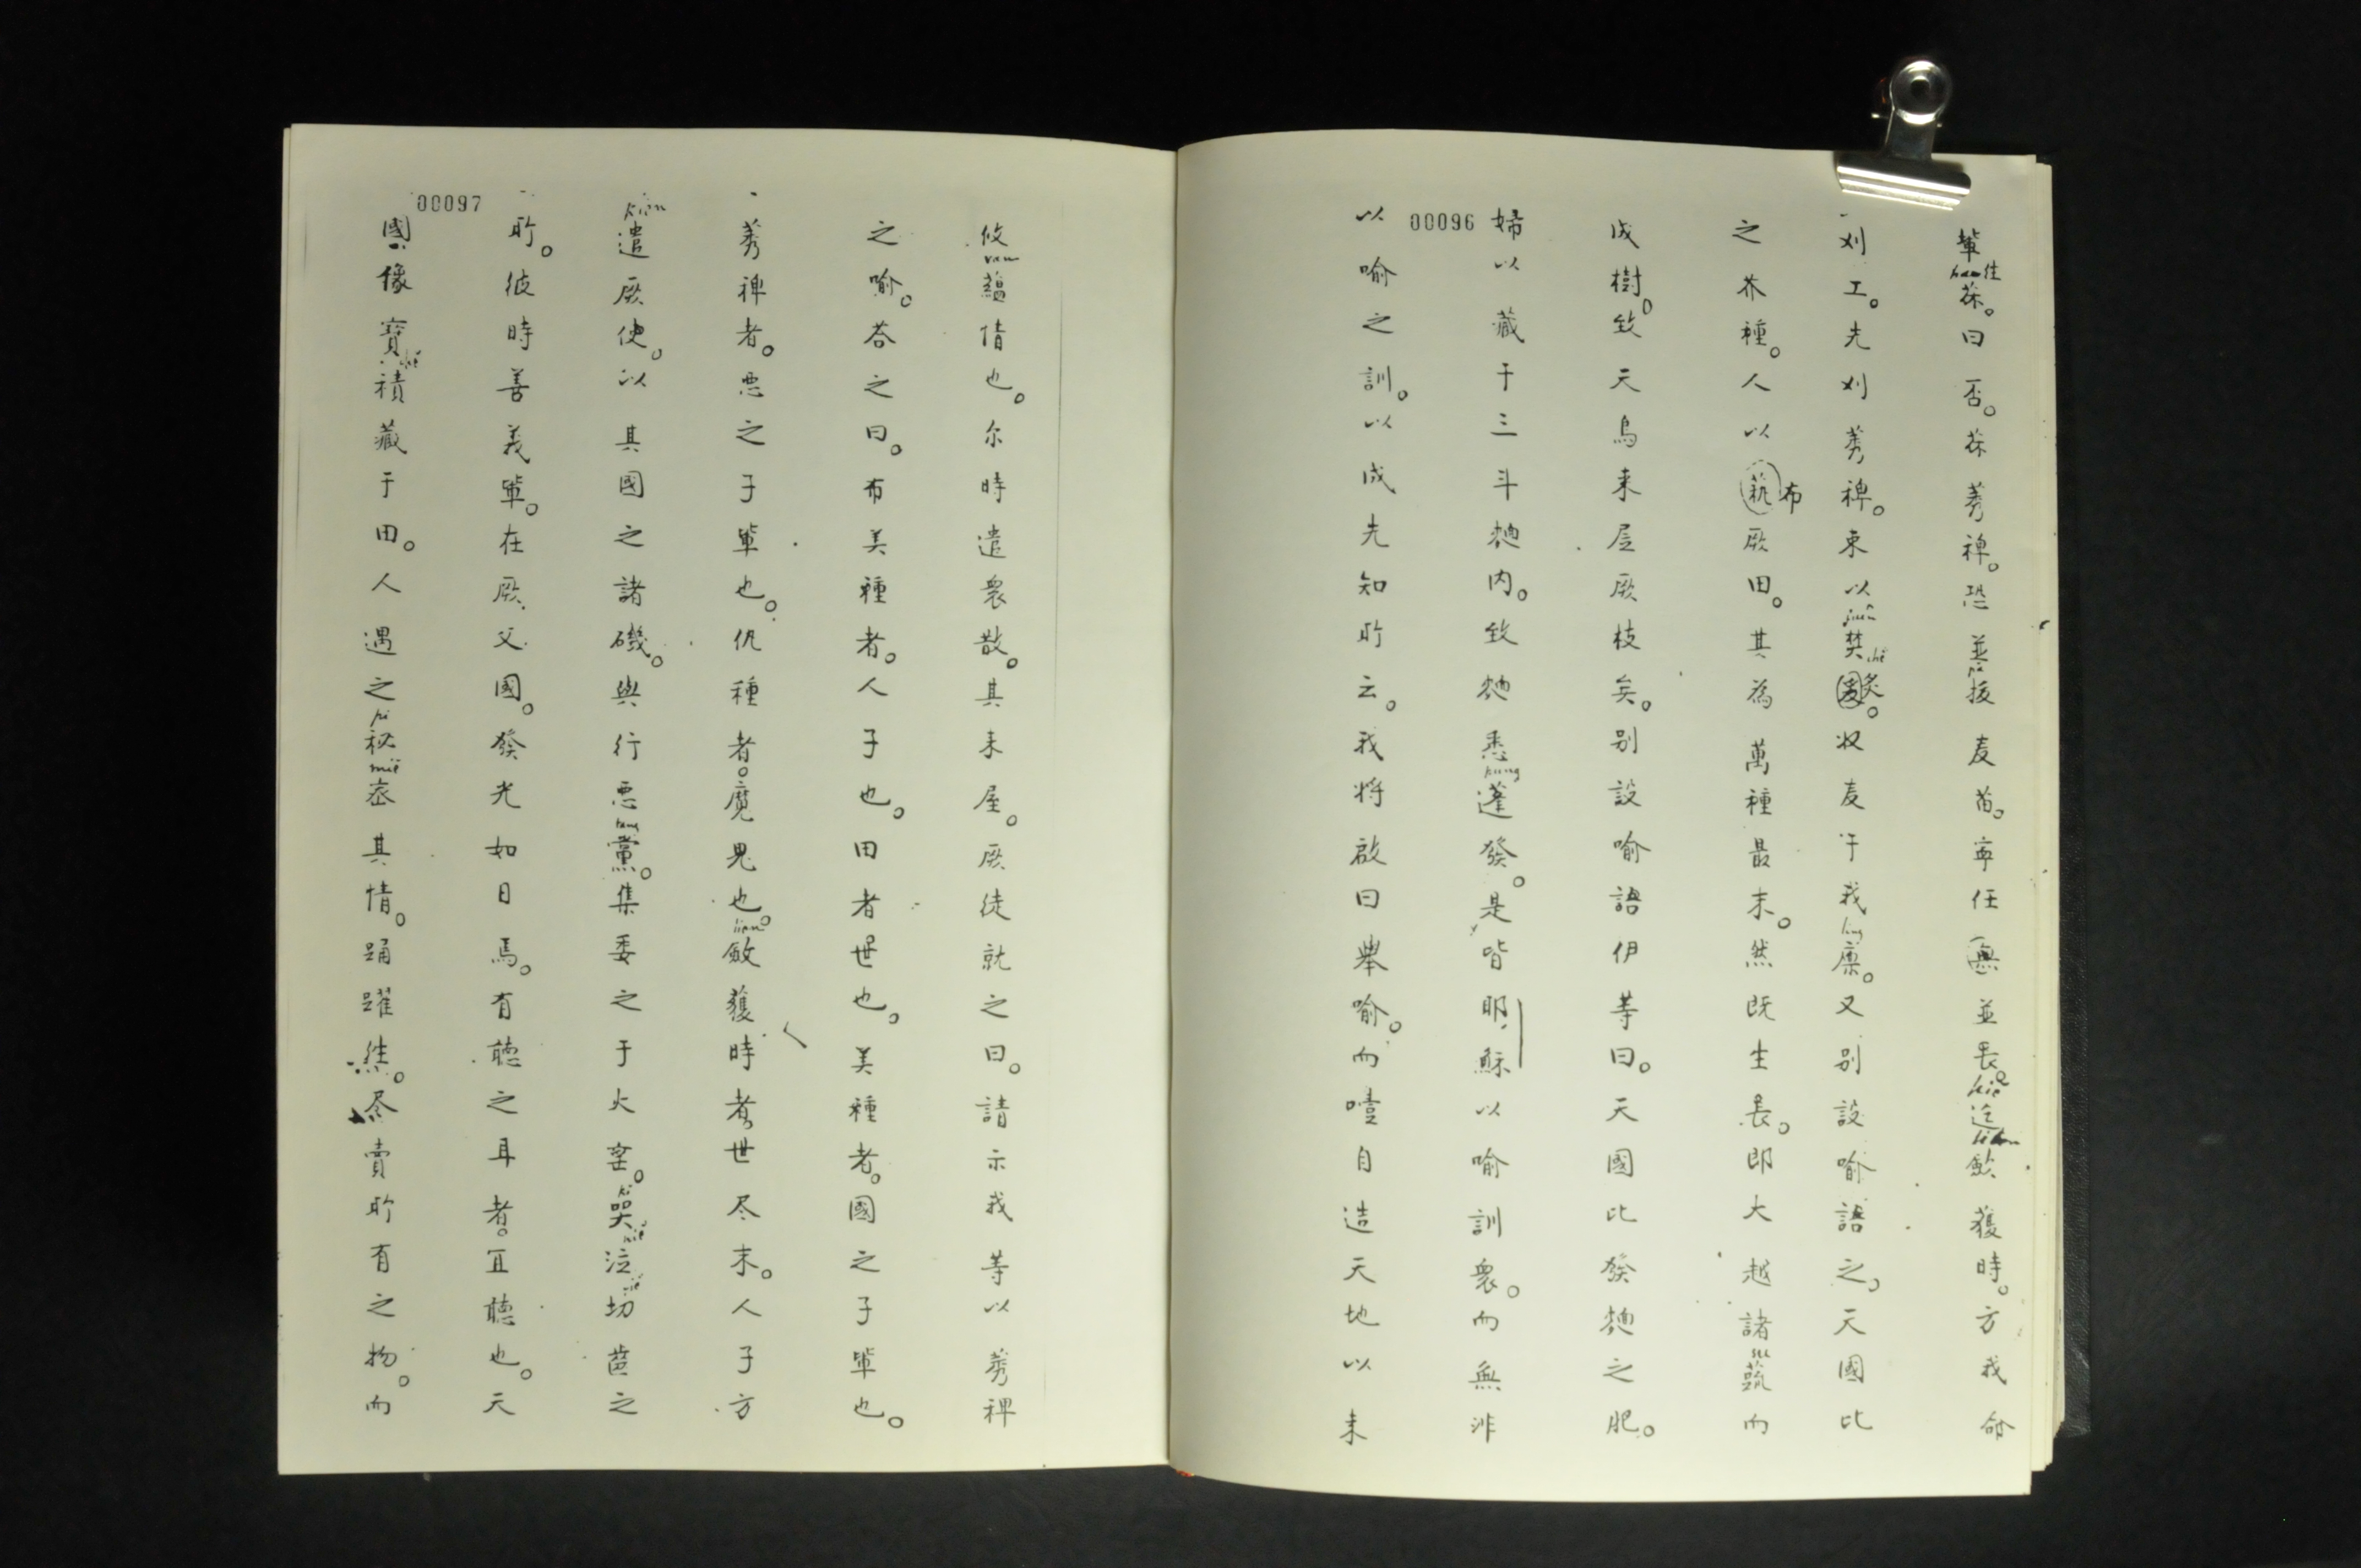 輩徃䓭。曰否。䓭莠稗。恐並拔麦苗。寕任無並長。迄歛獲時。方我命
han pa kiě liên
刈工。先刈莠稗。束以焚炙。収麦于我廩。又別設喻語之、天國比
fuên chě ling
之芥種。人以布厥田。其為萬種最末。然既生長。即大越諸蔬而
su
成樹。致天鳥来居厥枝矣。別設喻語伊等曰。天國比發麺之肥。
00096
婦以藏于三斗麺内。致麺悉蓬發。是皆耶穌以喻訓衆。而無非
pung
以喻之訓。以成先知所云。我將啟曰舉喻。而噎自造天地以来
00097
攸蘊情也。尔時遣衆散。其来屋。厥徒就之曰。請示我等以莠稗
之喻。荅之曰。布美種者。人子也。田者世也。美種者。國之子輩也。
莠稗者。悪之子輩也。仇種者。魔鬼也。斂獲時者、世尽末。人子方
liên
遣厥使。以其國之諸磯。與行悪黨。集委之于火窑。哭泣切菑之
kièn tang
所。彼時善義輩。在厥父國。發光如日焉。有聴之耳者。宜聴也。天
國像寳積藏于田。人遇之秘宻其情。踊躍徃。尽賣所有之物。而
pi miě